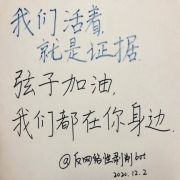 我们活着,
就是证据.
弦子加油,
我们都在你身边.
@反网络性剥削bot
2020.12.2